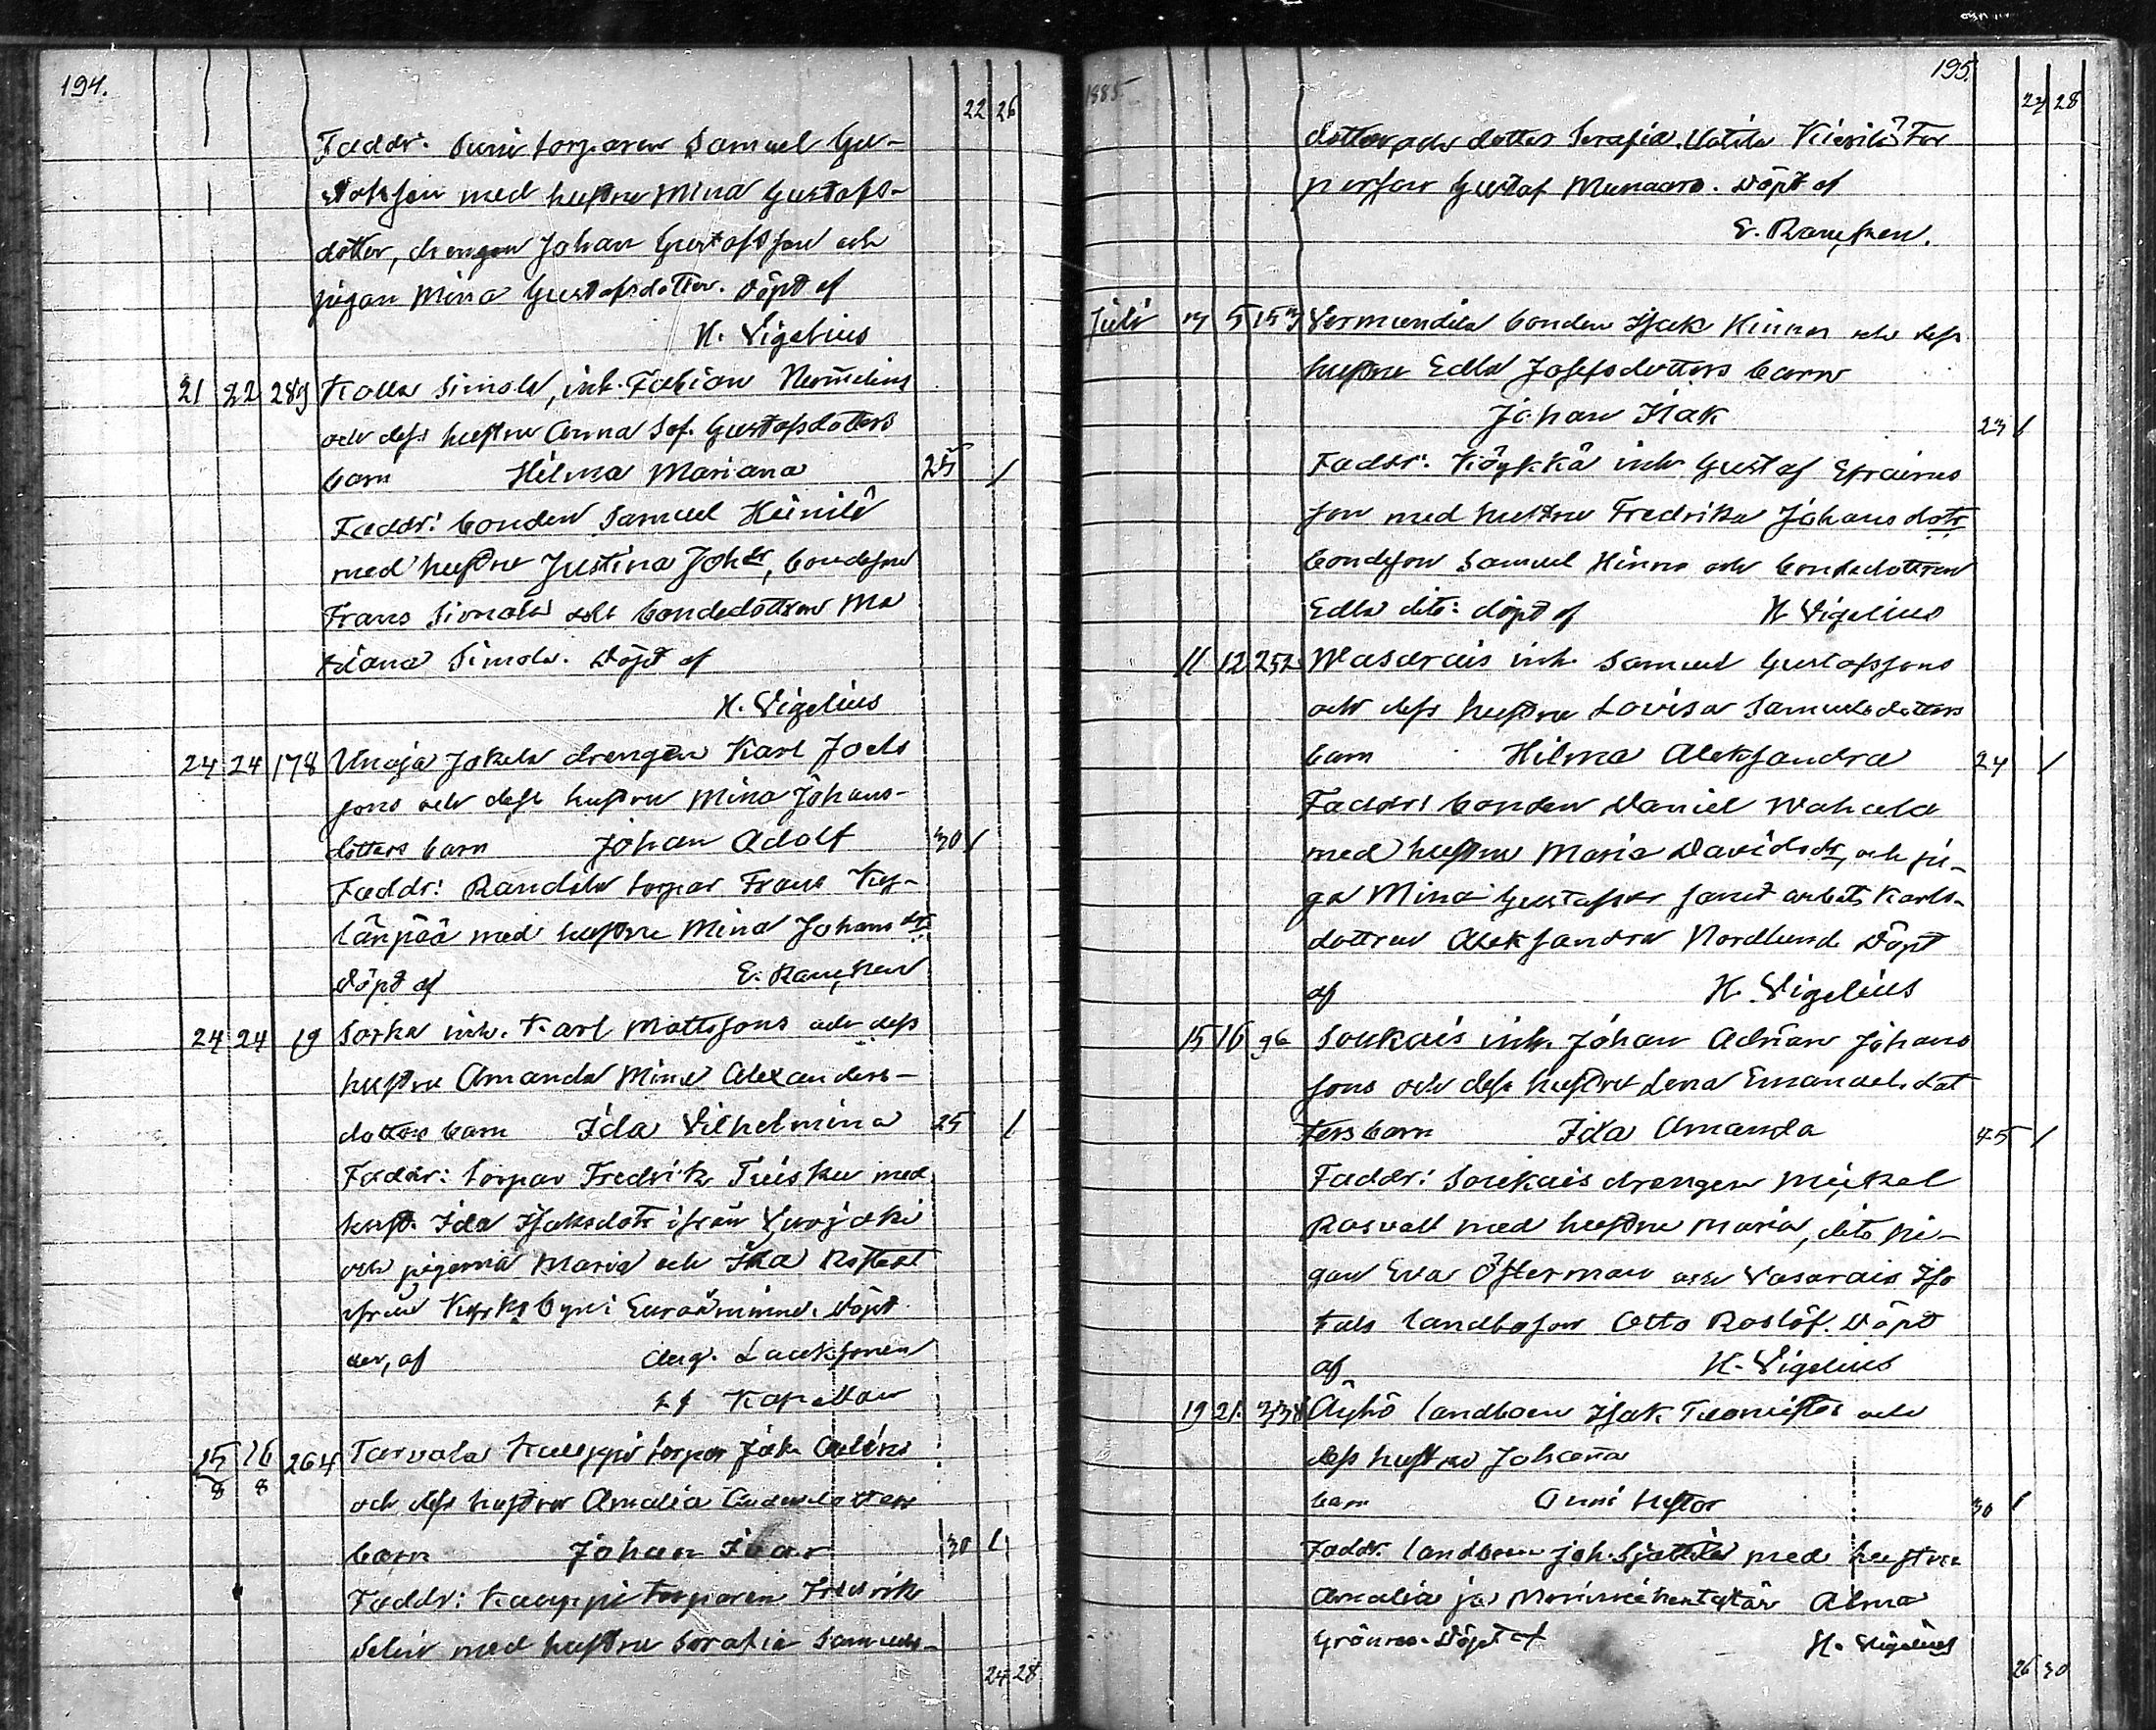 194.
22 26
Faddr: torparen Samuel Gu-
stafsson med hustru Mina Gustafs-
dotter, drengen Johan Gustafsson och
pigan Mina Gustafsdotter. Döpt af
H. Vigelius
21 22 289 Kolla Simola, inh. Fabian Numelins
och dess hustru Anna Sof. Gustafsdotters
barn Hilma Mariana 25 /
Faddr: bonden Samuel Heinilä
med hustru Justina Joh dr, bondeson
Frans Simola och bondedottren Ma
riana Simola. Döpt af
H. Vigelius
24 24 178 Unaja Jokela drengen Karl Joels
sons och dess hustru Mina Johans-
dotters barn Johan Adolf 30 /
Faddr: Randala torpar Frans Ky-
länpää med hustru Mina Johans dr
Döpt af E. Rancken
24 24 19 Sorka inh. Karl Mattssons och dess
hustru Amanda Mina Alexanders-
dotters barn Ida Vilhelmina 25 /
Faddr: torpar Fredrik Tuisku med
hust. Ida Isaksdotr ifrån
och pigorna Maria och Ida
ifrån Kyrkobyn i Euraåminne. Döpt
der, af Aug. Lauksonen
Kapellan
25 26 264 Tarvola Kauppi torpar Isak
8 8
och dess hustru Amalia dotters
barn Johan Ivar 30 /
Faddr: Kauppi torparen Fredrik
Selin med hustru Serafia Samuels-
24 28
1885 195.
24 28
dotter och dotter Serafia Matila For
parson Gustaf Munaaro. Döpt af
E. Rancken.
Juli 3 5 153 Vermundila bonden Isak Hinnos och dess
hustru Edla Josefsdotters barn
Johan Isak 23 /
Faddr: Köykkä inh Gustaf Efraims
son med hustru Fredrika Johansdotr
bondeson Samuel Hinno och bondedottren
Edla dito: döpt af H Vigelius
11 12 252 Wasarais inh. Samuel Gustafssons
och dess hustru Lovisa Samuelsdotters
barn Hilma Aleksandra 24 /
Faddr: bonden Daniel Wahala
med hustru Maria Davidsdr, och pi-
ga Mina Gustafsdr samt arbets Karls-
dottren Aleksandra Nordlund. Döpt
af H. Vigelius
15 16 96 Soukais inh. Johan Adrian Johans
sons och dess hustru Lena Emanuelsdot
ters barn Ida Amanda 45 /
Faddr: Soukais drengen Mickel
Rosvall med hustru Maria, dito pi-
gan Eva Österman och Vasarais Iso
tals landboson Otto Roslöf. Döpt
af H. Vigelius
19 21 338 Äyhö landboen Isak Tuomistos och
dess hustru Johanna
barn Onni Nestor 30 /
Faddr. landboen Joh. Sjattila med hustru
Amalia ja Alma
Grönroos. Döpt af H. Vigelius
26 30